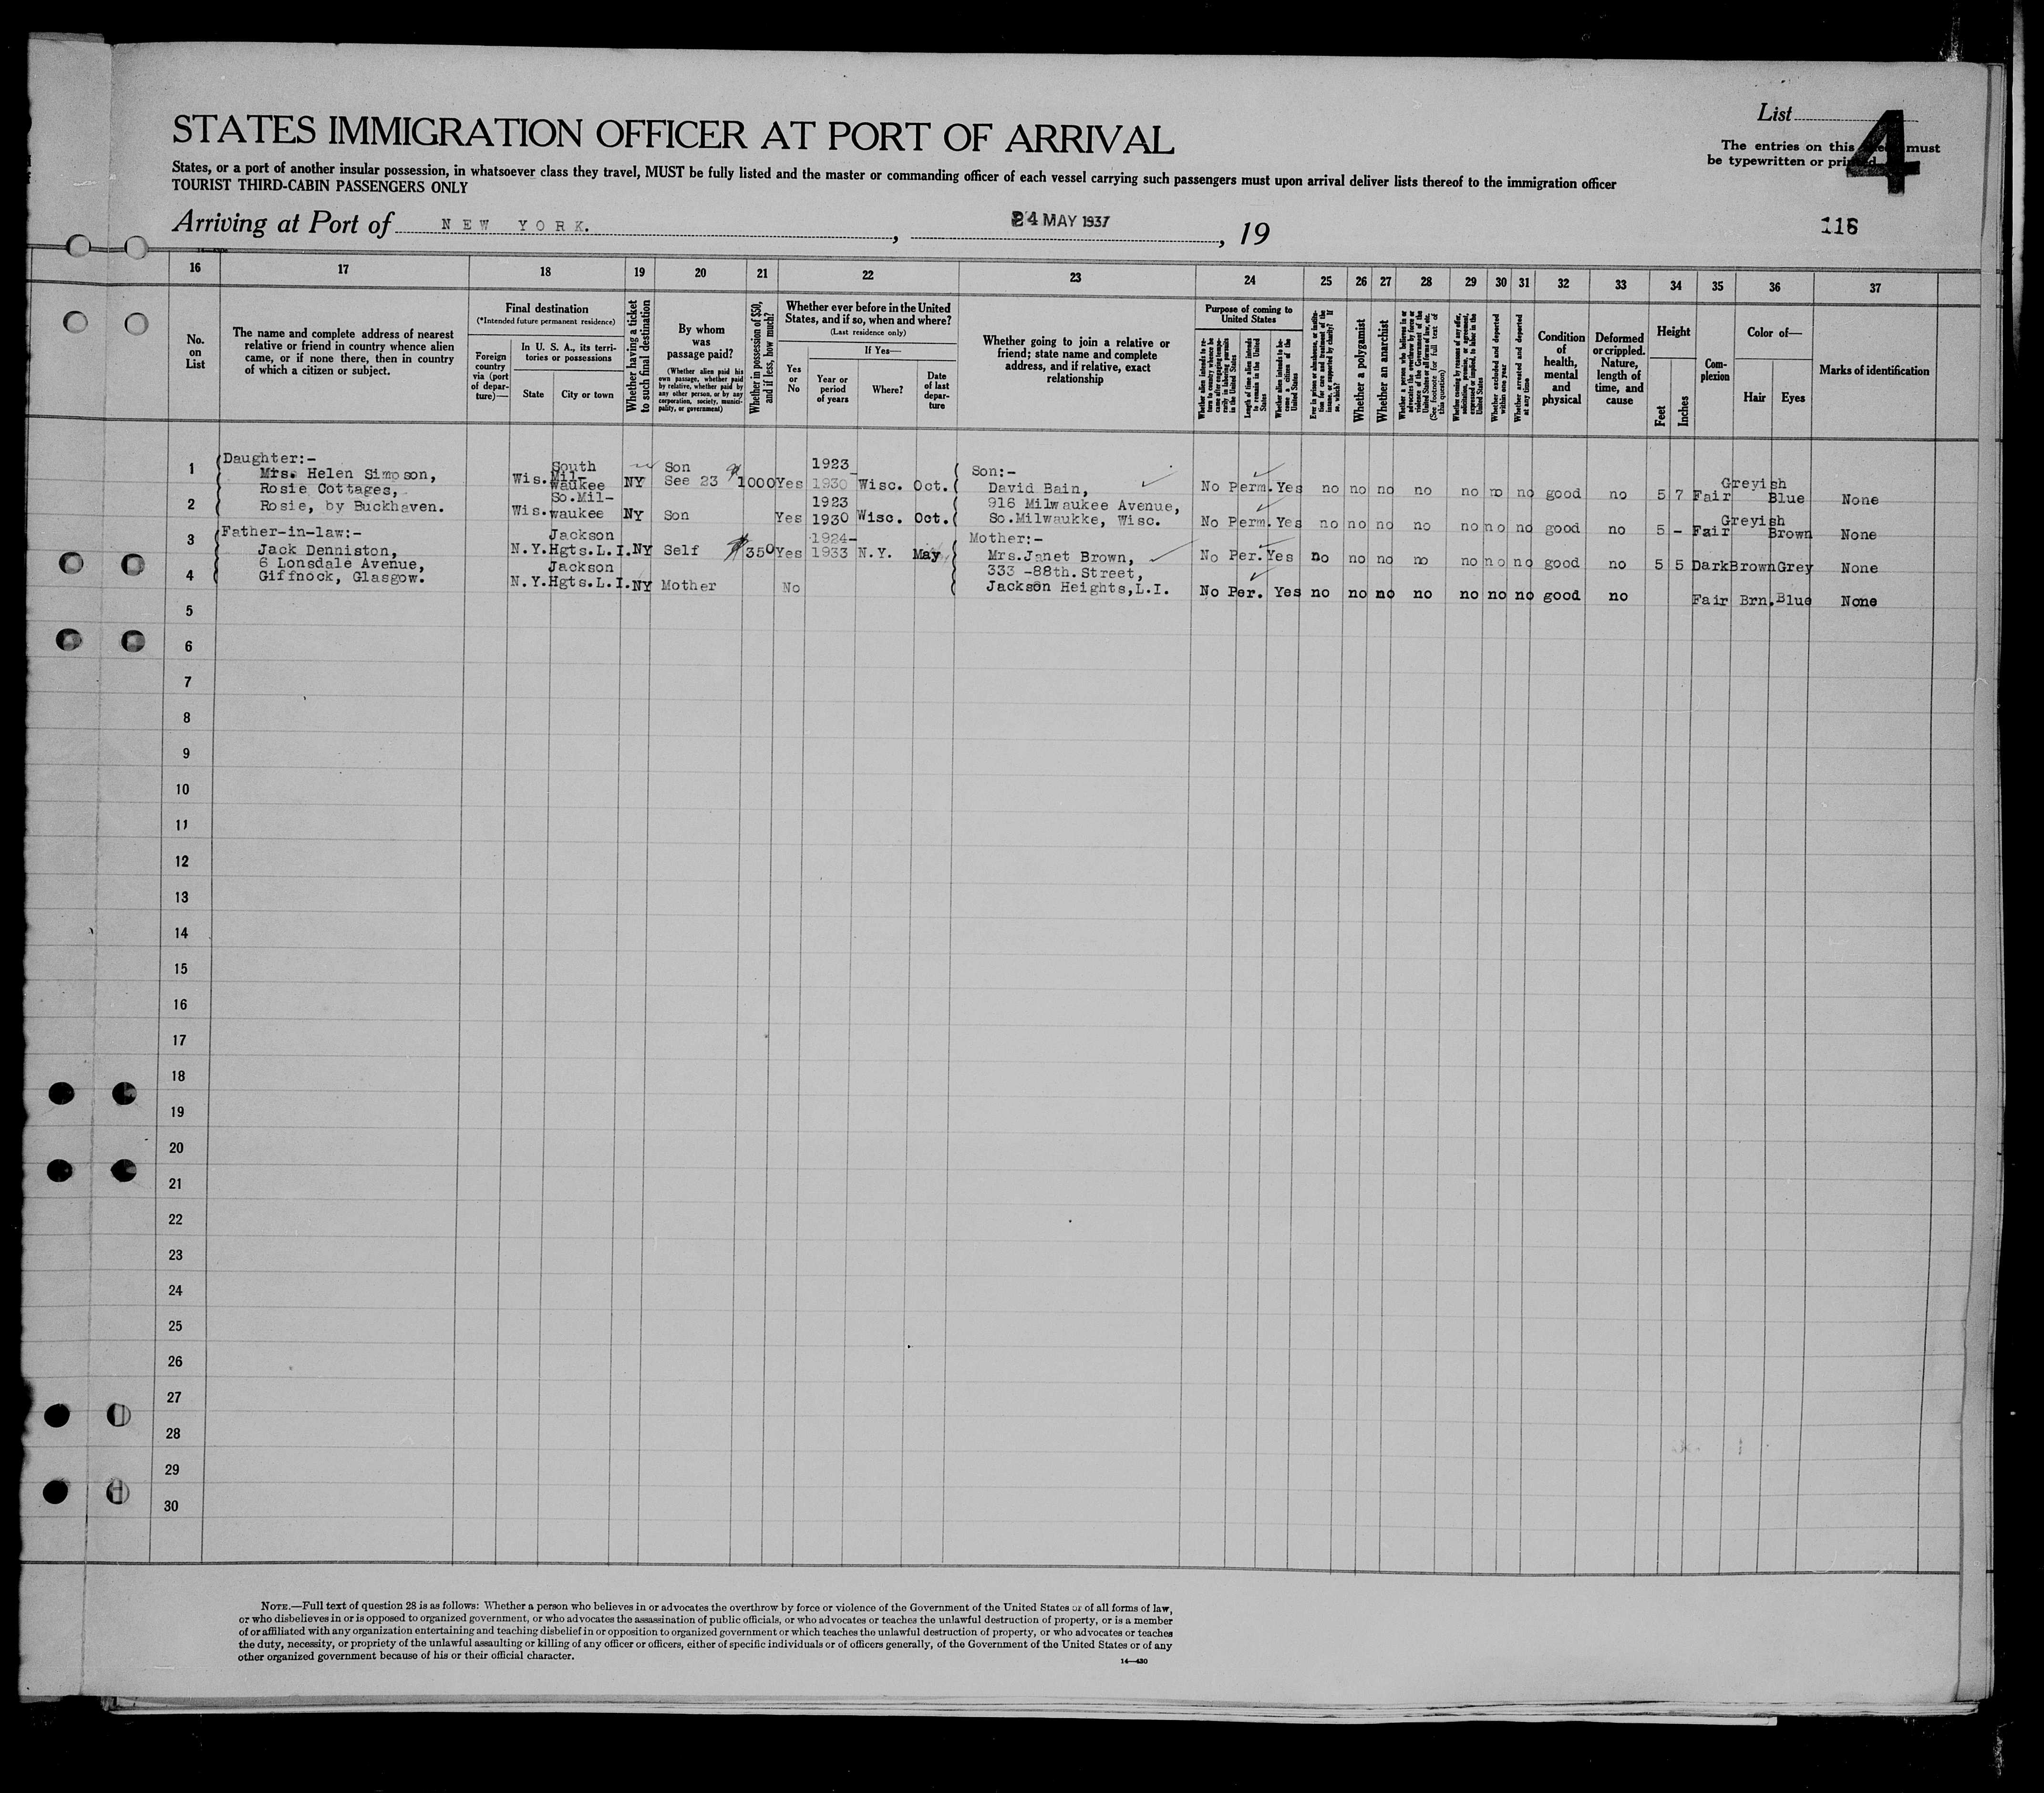 STATES IMMIGRATION OFFICER AT PORT OF ARRIVAL
List 4
The entries on this must
be typewritten or
States, or a port of another insular possession, in whatsoever class they travel, MUST be fully listed and the master or commanding officer of each vessel carrying such passengers must upon arrival deliver lists thereof to the immigration officer
TOURIST THIRD-CABIN PASSENGERS ONLY
Arriving at Port of NEW YORK. , 24 MAY 1937 , 19
116
16 17 18 19 20 21 22 23 24 25 26 27 28 29 30 31 32 33 34 35 36 37
No. on List
The name and complete address of nearest
relative or friend in country whence alien
came, or if none there, then in country
of which a citizen or subject.
Final destination
(*Intended future permanent residence)
Foreign country via (port of departure)—
In U. S. A., its territories or possessions
State
City or town
Whether having a ticket to such final destination
By whom was passage paid?
(Whether alien paid his own passage, whether paid by relative, whether paid by any other person, or by any corporation, society, municipality, or government)
Whether in possession of $50, and if less, how much?
Whether ever before in the United States, and if so, when and where?
(Last residence only)
Yes or No
If Yes—
Year or period of years
Where?
Date of last departure
Whether going to join a relative or
friend; state name and complete
address, and if relative, exact
relationship
Purpose of coming to United States
Whether alien intends to return to country whence he came after engaging temporarily in laboring pursuits in the United States
Length of time alien intends to remain in the United States
Whether alien intends to become a citizen of the United States
Ever in prison or almshouse, or institution for care and treatment of the insane, or supported by charity? If so, which?
Whether a polygamist
Whether an anarchist
Whether a person who believes in or advocates the overthrow by force or violence of the Government of the United States or all forms of law, etc. (See footnote for full text of this question)
Whether coming by reason of any offer, solicitation, promise, or agreement, expressed or implied, to labor in the United States
Whether excluded and deported within one year
Whether arrested and deported at any time
Condition of health, mental and physical
Deformed or crippled. Nature, length of time, and cause
Height
Feet
Inches
Complexion
Color of—
Hair
Eyes
Marks of identification
1 Daughter:-
Mrs. Helen Simpson,
Rosie Cottages,
Rosie, by Buckhaven.
Wis. South Mil-waukee NY Son See 23 1000 Yes 1923-1930 Wisc. Oct.
Son:-
David Bain,
916 Milwaukee Avenue,
So.Milwaukke, Wisc.
No Perm. Yes no no no no no no no good no 5 7 Fair Greyish Blue None
2 Wis. So.Mil-waukee NY Son Yes 1923 1930 Wisc. Oct.
No Perm. Yes no no no no no no no good no 5 - Fair Greyish Brown None
3 Father-in-law:-
Jack Denniston,
6 Lonsdale Avenue,
Giffnock, Glasgow.
N.Y. Jackson Hgts.L.I. NY Self 350 Yes 1924-1933 N.Y. May
Mother:-
Mrs.Janet Brown,
333 -88th.Street,
Jackson Heights,L.I.
No Per. Yes no no no no no no no good no 5 5 Dark Brown Grey None
4 N.Y. Jackson Hgts.L.I. NY Mother No
No Per. Yes no no no no no no no good no Fair Brn. Blue None
5
6
7
8
9
10
11
12
13
14
15
16
17
18
19
20
21
22
23
24
25
26
27
28
29
30
NOTE.—Full text of question 28 is as follows: Whether a person who believes in or advocates the overthrow by force or violence of the Government of the United States or of all forms of law,
or who disbelieves in or is opposed to organized government, or who advocates the assassination of public officials, or who advocates or teaches the unlawful destruction of property, or is a member
of or affiliated with any organization entertaining and teaching disbelief in or opposition to organized government or which teaches the unlawful destruction of property, or who advocates or teaches
the duty, necessity, or propriety of the unlawful assaulting or killing of any officer or officers, either of specific individuals or of officers generally, of the Government of the United States or of any
other organized government because of his or their official character.
14—430